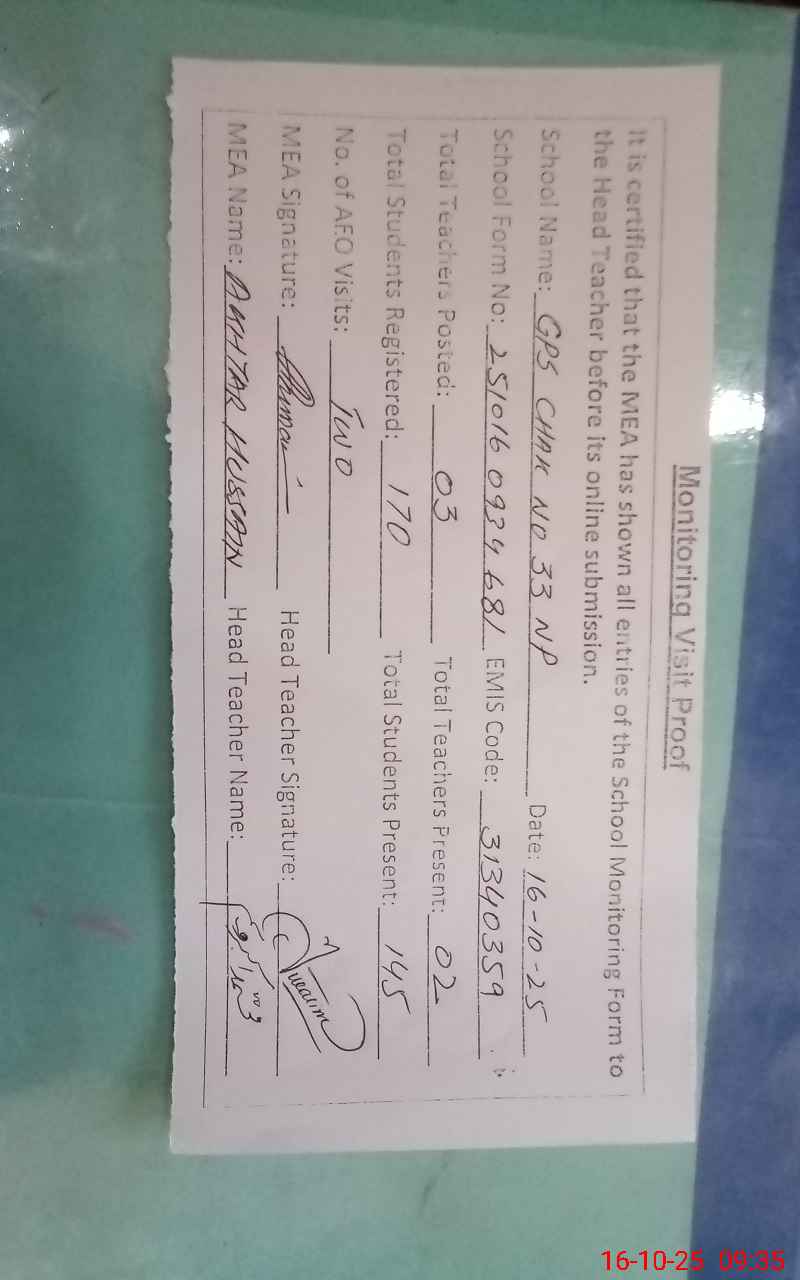 Monitoring Visit Proof
It is certified that the MEA has shown all entries of the School Monitoring Form to
the Head Teacher before its online submission.
School Name: GPS CHAK NO 33 NP Date: 16-10-25
School Form No: 251016 0934 681 EMIS Code: 31340359
Total Teachers Posted: 03 Total Teachers Present: 02
Total Students Registered: 170 Total Students Present: 145
No. of AEO Visits: TWO
MEA Signature: Head Teacher Signature:
MEA Name: AKHTAR HUSSAIN Head Teacher Name:
16-10-25 09:35